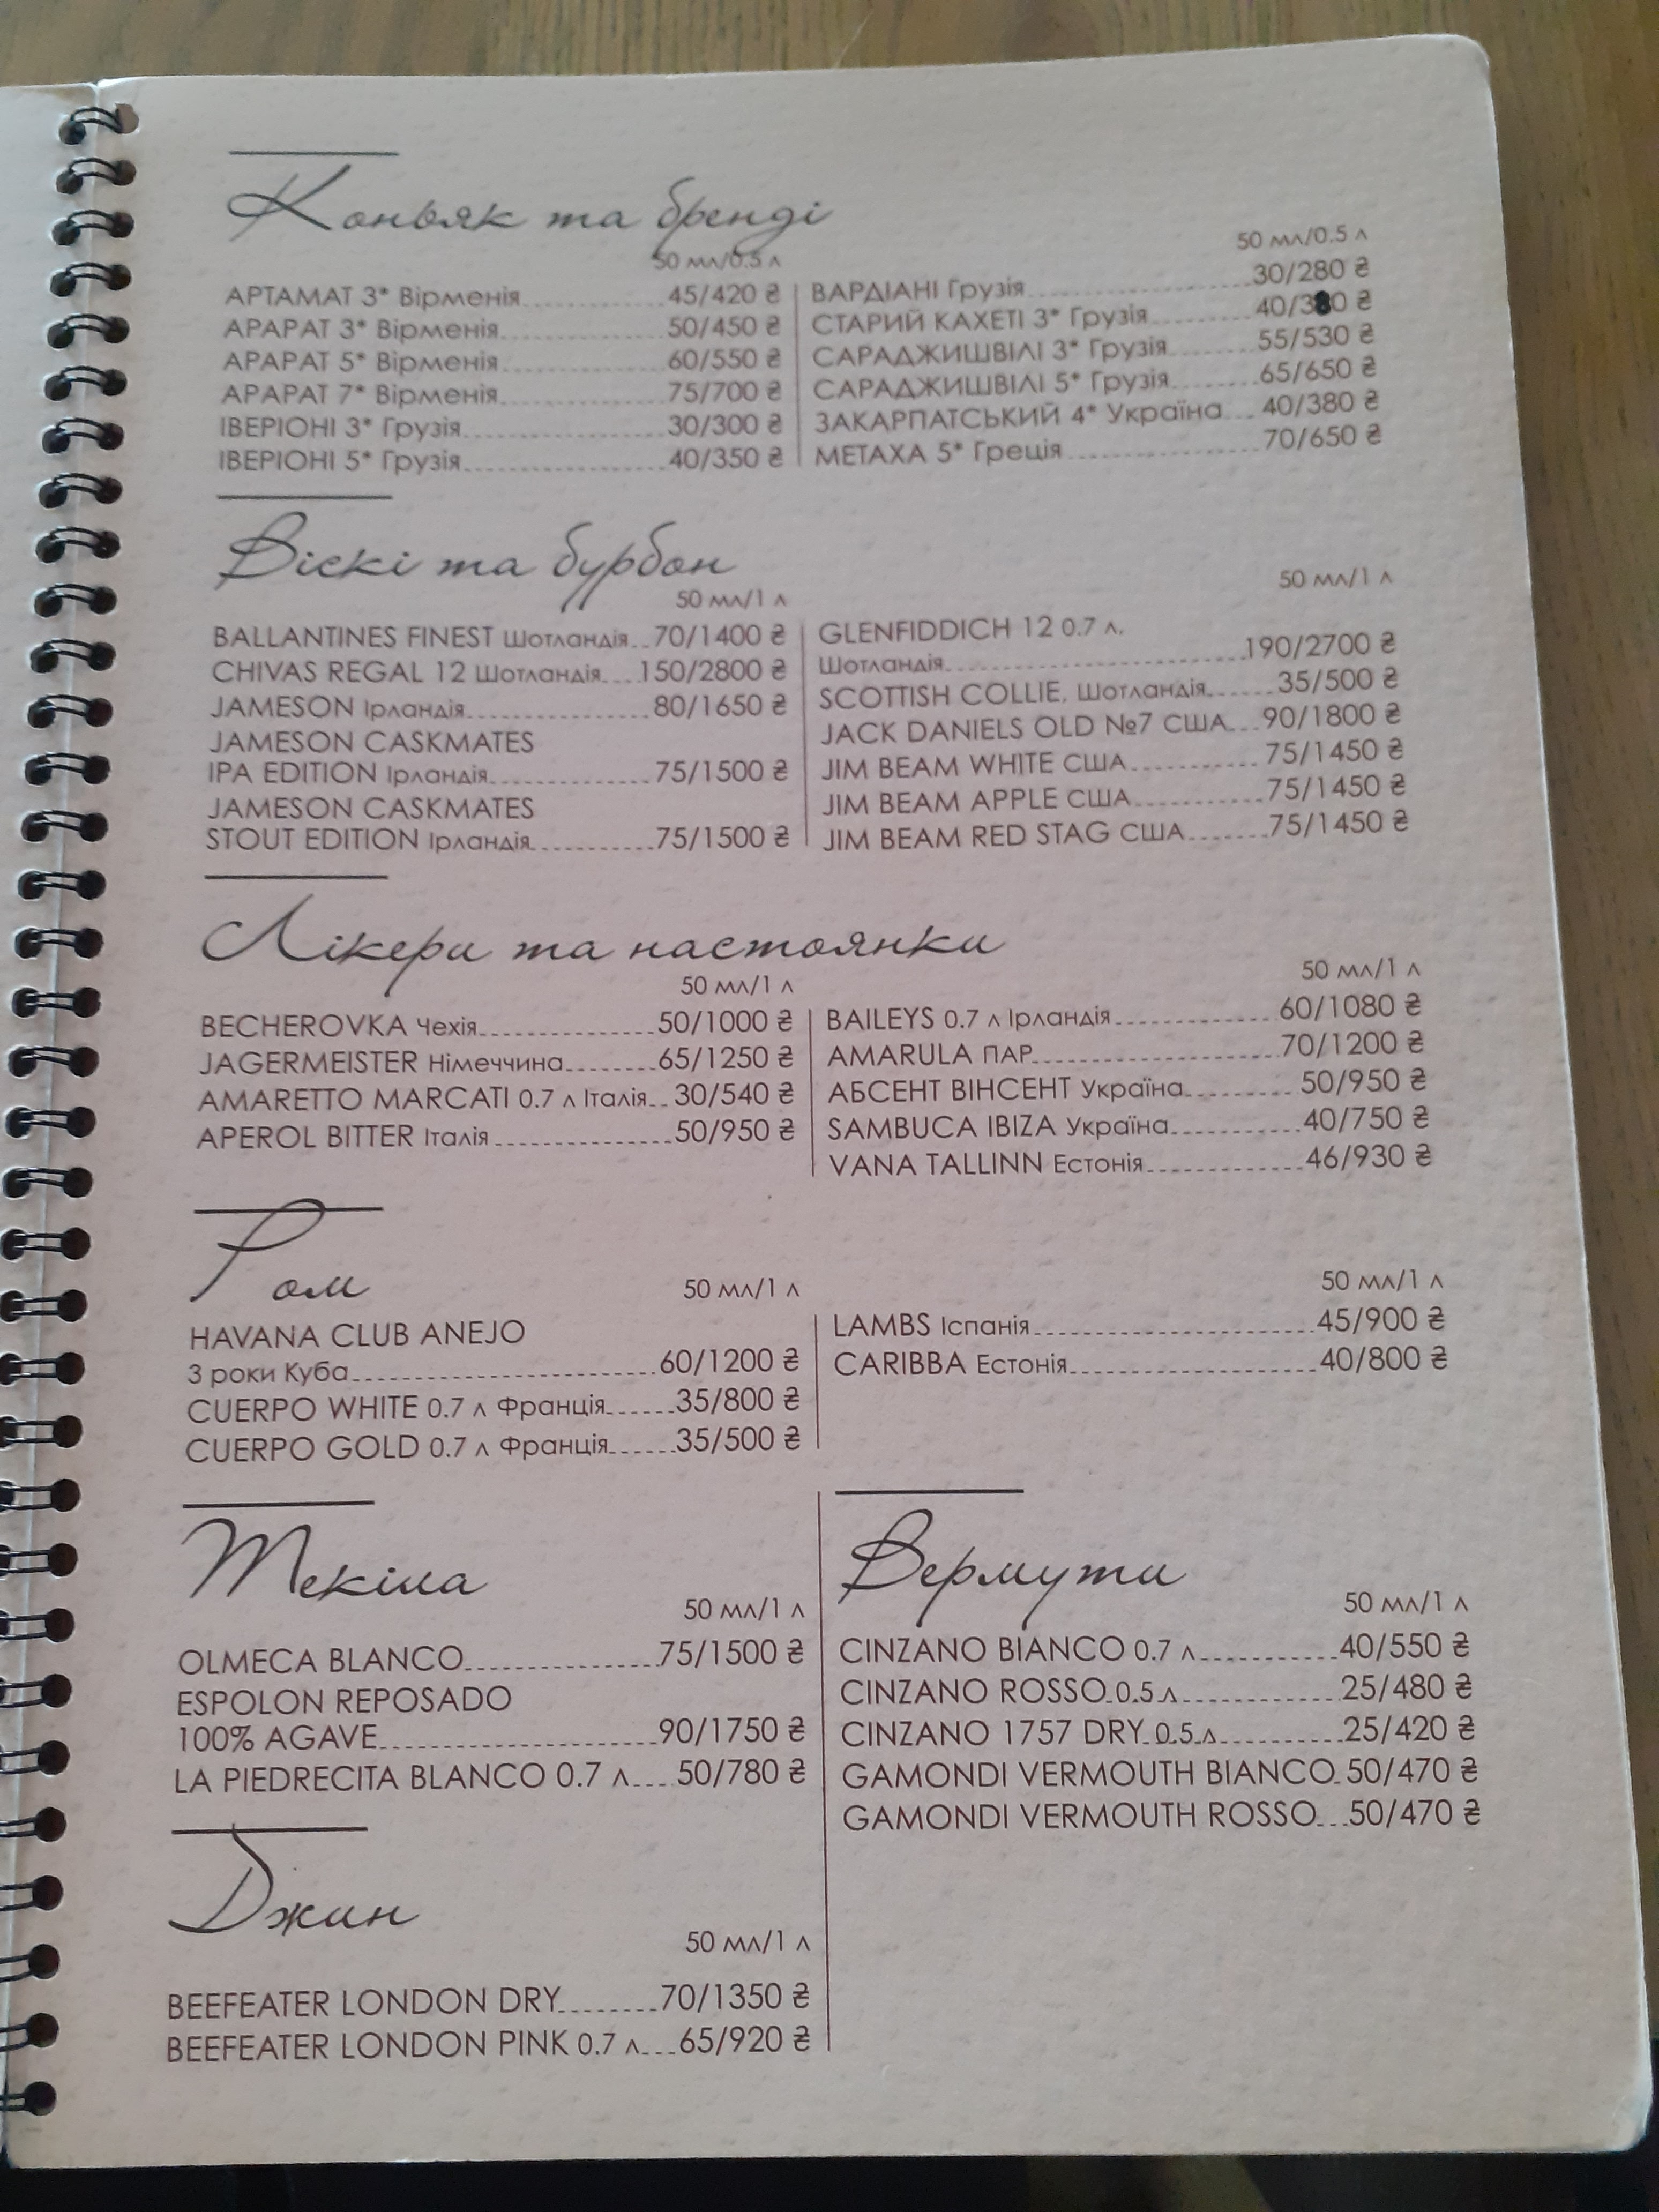 Коньяк та бренді
50 мл/0.5 л
АРТАМАТ 3* Вірменія 45/420 ₴
АРАРАТ 3* Вірменія 50/450 ₴
АРАРАТ 5* Вірменія 60/550 ₴
АРАРАТ 7* Вірменія 75/700 ₴
ІВЕРІОНІ 3* Грузія 30/300 ₴
ІВЕРІОНІ 5* Грузія 40/350 ₴
50 мл/0.5 л
ВАРДІАНІ Грузія 30/280 ₴
СТАРИЙ КАХЕТІ 3* Грузія 40/380 ₴
САРАДЖИШВІЛІ 3* Грузія 55/530 ₴
САРАДЖИШВІЛІ 5* Грузія 65/650 ₴
ЗАКАРПАТСЬКИЙ 4* Україна 40/380 ₴
МЕТАХА 5* Греція 70/650 ₴
Віскі та бурбон
50 мл/1 л
BALLANTINES FINEST Шотландія 70/1400 ₴
CHIVAS REGAL 12 Шотландія 150/2800 ₴
JAMESON Ірландія 80/1650 ₴
JAMESON CASKMATES
IPA EDITION Ірландія 75/1500 ₴
JAMESON CASKMATES
STOUT EDITION Ірландія 75/1500 ₴
50 мл/1 л
GLENFIDDICH 12 0.7 л.
Шотландія 190/2700 ₴
SCOTTISH COLLIE, Шотландія 35/500 ₴
JACK DANIELS OLD №7 США 90/1800 ₴
JIM BEAM WHITE США 75/1450 ₴
JIM BEAM APPLE США 75/1450 ₴
JIM BEAM RED STAG США 75/1450 ₴
Лікери та настоянки
50 мл/1 л
BECHEROVKA Чехія 50/1000 ₴
JAGERMEISTER Німеччина 65/1250 ₴
AMARETTO MARCATI 0.7 л Італія 30/540 ₴
APEROL BITTER Італія 50/950 ₴
50 мл/1 л
BAILEYS 0.7 л Ірландія 60/1080 ₴
AMARULA ПАР 70/1200 ₴
АБСЕНТ ВІНСЕНТ Україна 50/950 ₴
SAMBUCA IBIZA Україна 40/750 ₴
VANA TALLINN Естонія 46/930 ₴
Ром
50 мл/1 л
HAVANA CLUB ANEJO
3 роки Куба 60/1200 ₴
CUERPO WHITE 0.7 л Франція 35/800 ₴
CUERPO GOLD 0.7 л Франція 35/500 ₴
50 мл/1 л
LAMBS Іспанія 45/900 ₴
CARIBBA Естонія 40/800 ₴
Текіла
50 мл/1 л
OLMECA BLANCO 75/1500 ₴
ESPOLON REPOSADO
100% AGAVE 90/1750 ₴
LA PIEDRECITA BLANCO 0.7 л 50/780 ₴
Вермути
50 мл/1 л
CINZANO BIANCO 0.7 л 40/550 ₴
CINZANO ROSSO 0.5 л 25/480 ₴
CINZANO 1757 DRY 0.5 л 25/420 ₴
GAMONDI VERMOUTH BIANCO 50/470 ₴
GAMONDI VERMOUTH ROSSO 50/470 ₴
Джин
50 мл/1 л
BEEFEATER LONDON DRY 70/1350 ₴
BEEFEATER LONDON PINK 0.7 л 65/920 ₴